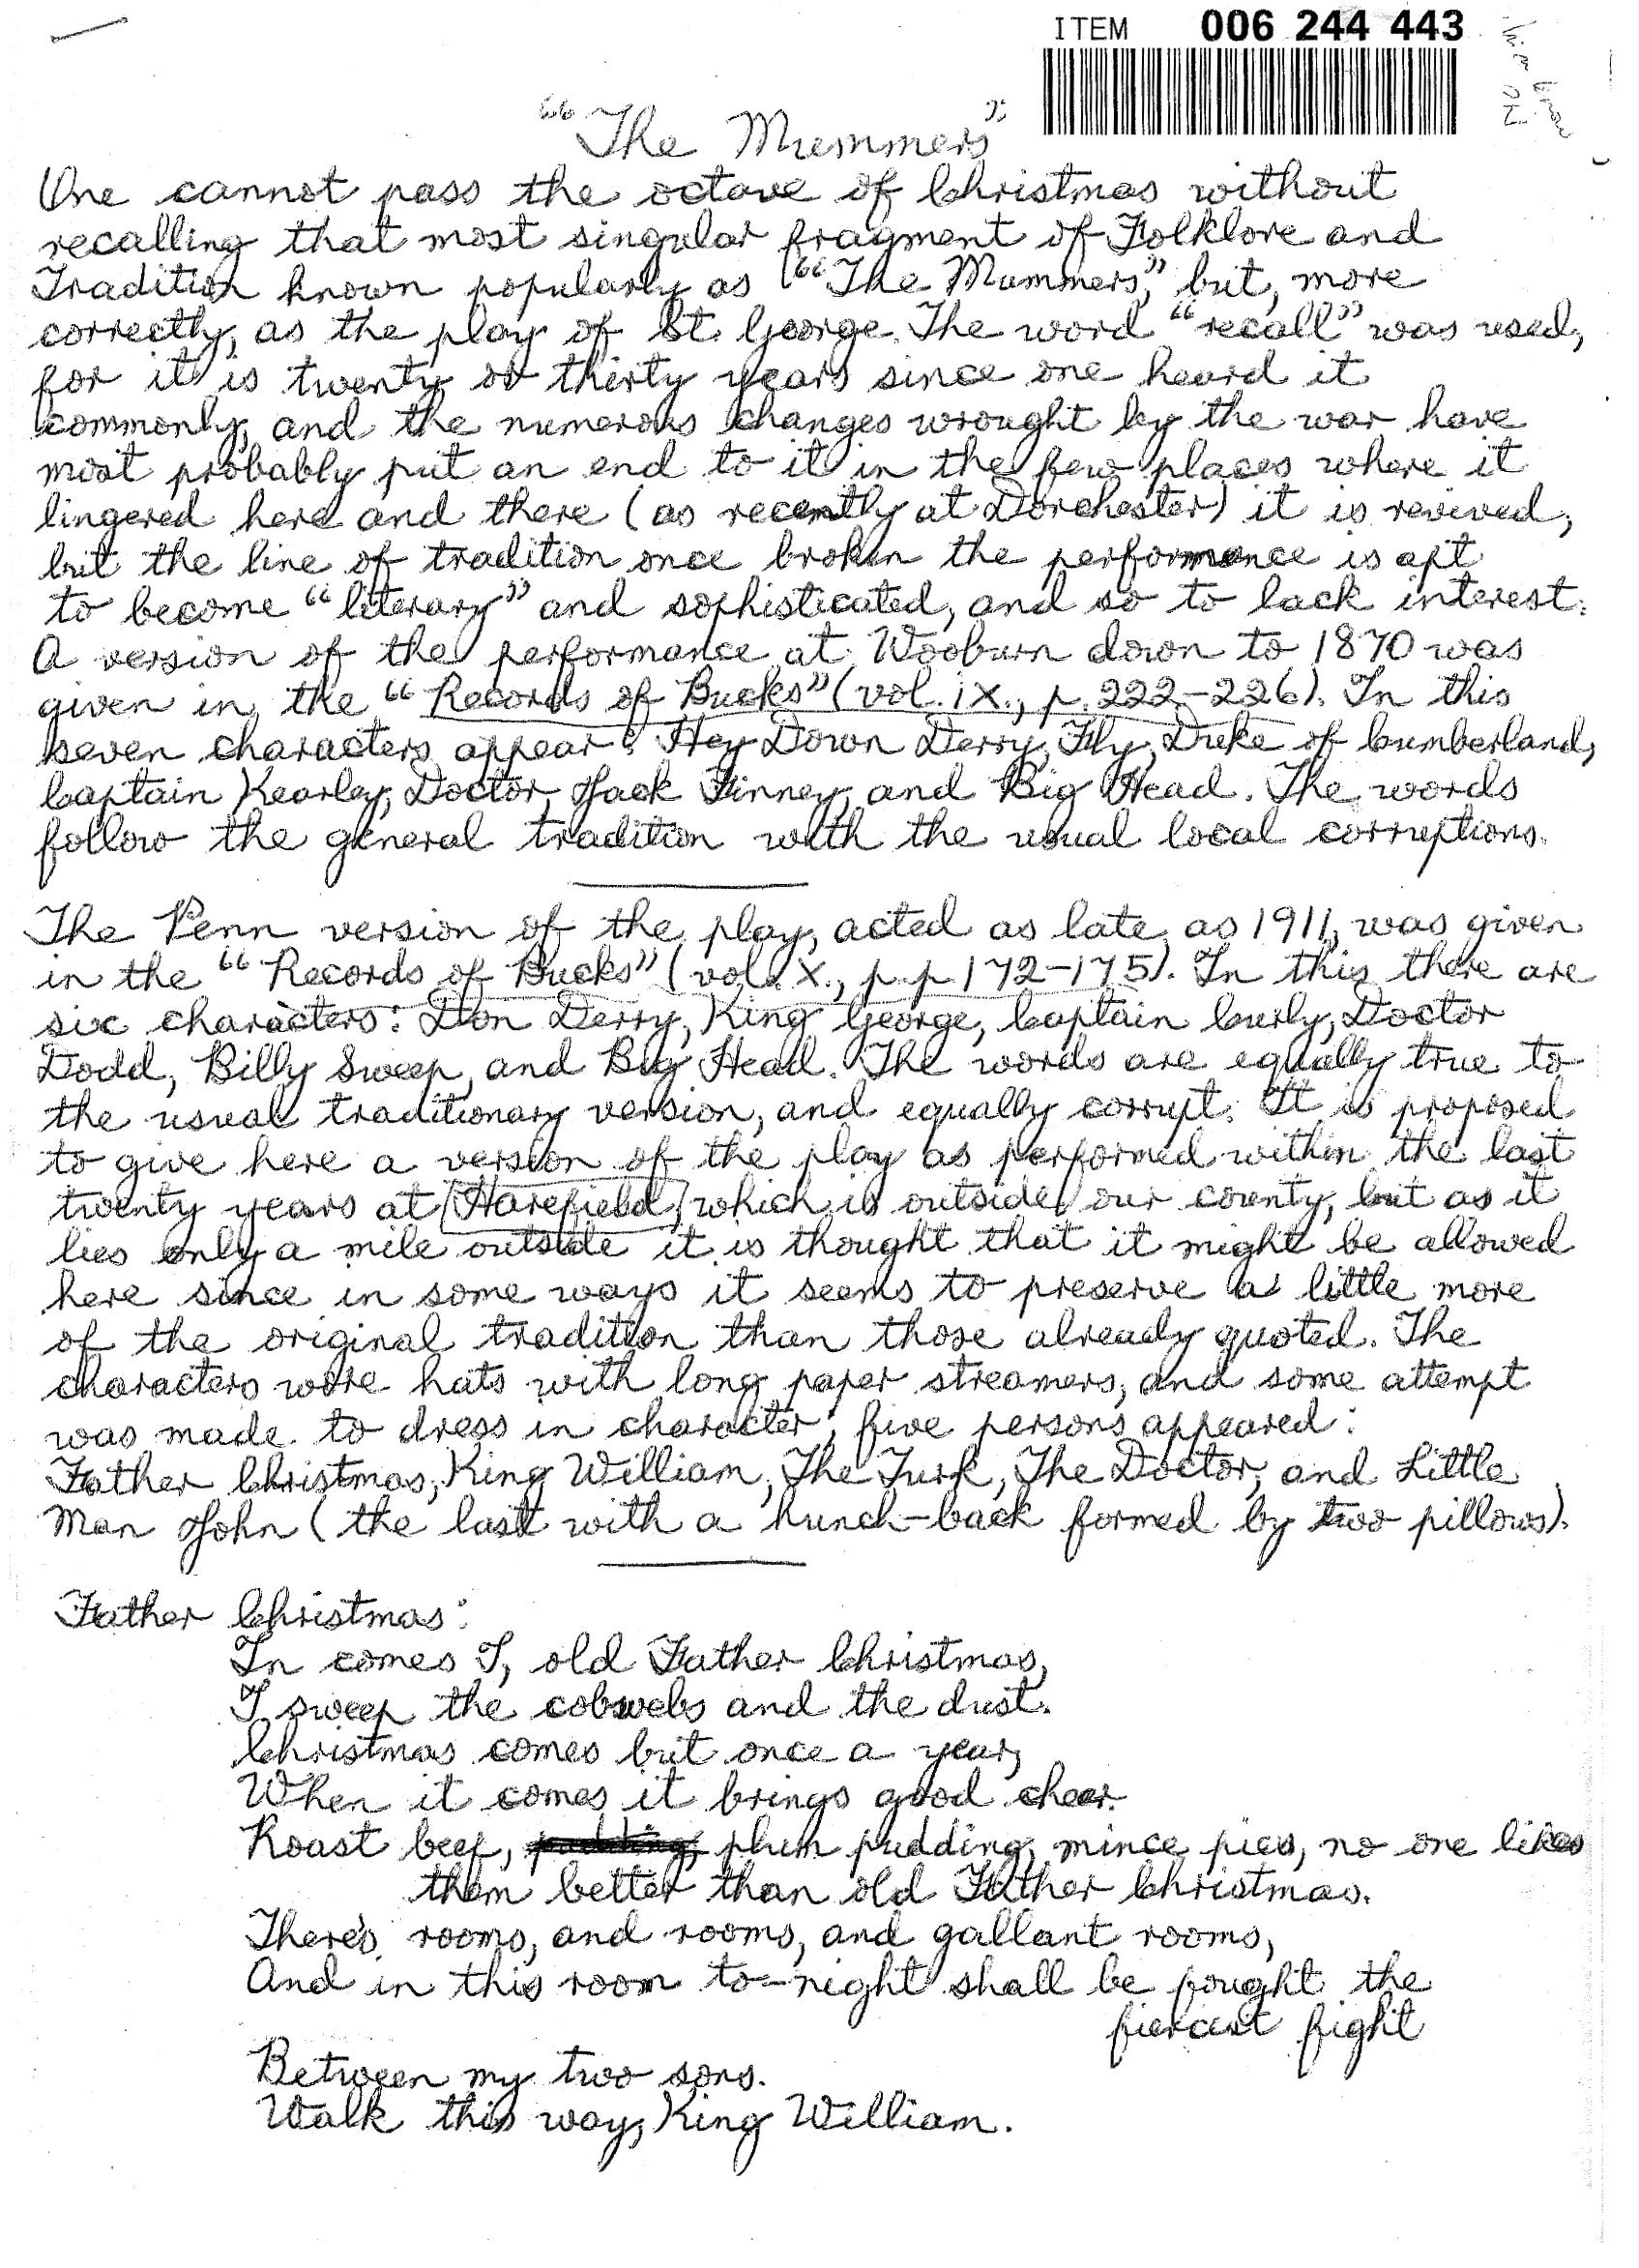 ITEM 006 244 443
"The Mummers"
One cannot pass the octave of Christmas without
recalling that most singular fragment of Folklore and
Tradition known popularly as "The Mummers", but, more
correctly, as the play of St. George. The word "recall" was used,
for it is twenty or thirty years since one heard it
commonly, and the numerous changes wrought by the war have
most probably put an end to it in the few places where it
lingered here and there (as recently at Dorchester) it is revived,
but the line of tradition once broken the performance is apt
to become "literary" and sophisticated, and so to lack interest.
A version of the performance at Wooburn down to 1870 was
given in the "Records of Bucks" (vol. ix., p. 222-226). In this
seven characters appear: Hey Down Derry, Fly, Duke of Cumberland,
Captain Kearley, Doctor, Jack Finney, and Big Head. The words
follow the general tradition with the usual local corruptions.
The Penn version of the play, acted as late as 1911, was given
in the "Records of Bucks" (vol. X., p.p 172-175). In this there are
six characters: Don Derry, King George, Captain Curly, Doctor
Dodd, Billy Sweep, and Big Head. The words are equally true to
the usual traditionary version, and equally corrupt. It is proposed
to give here a version of the play as performed within the last
twenty years at Harefield, which is outside our county, but as it
lies only a mile outside it is thought that it might be allowed
here since in some ways it seems to preserve a little more
of the original tradition than those already quoted. The
characters wore hats with long paper streamers, and some attempt
was made to dress in character; five persons appeared:
Father Christmas, King William, The Turk, The Doctor, and Little
Man John (the last with a hunch-back formed by two pillows).
Father Christmas:
In comes I, old Father Christmas,
I sweep the cobwebs and the dust.
Christmas comes but once a year,
When it comes it brings good cheer.
Roast beef, plum pudding, mince pies, no one likes
them better than old Father Christmas.
There's rooms, and rooms, and gallant rooms,
And in this room to-night shall be fought the
fiercest fight
Between my two sons.
Walk this way, King William.